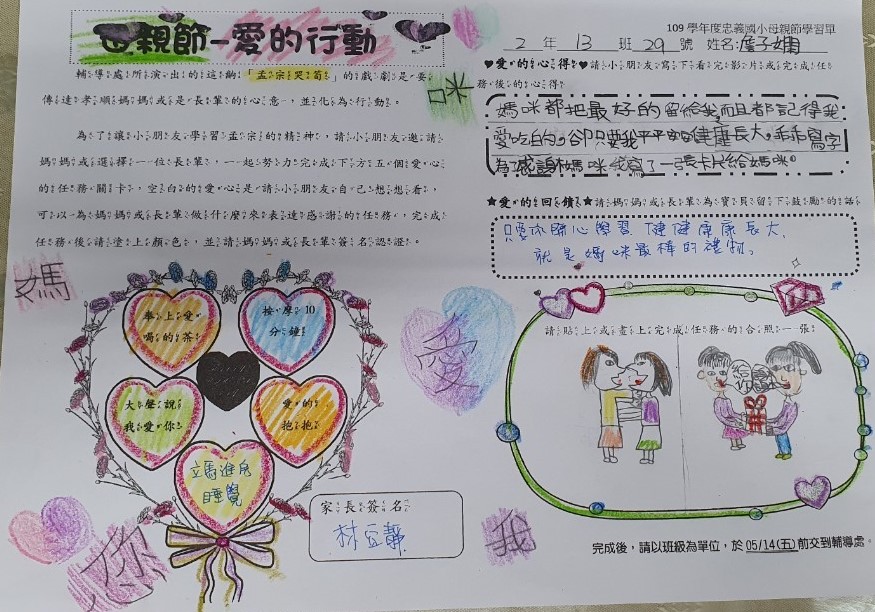 109 學年度忠義國小母親節學習單
母親節–愛的行動
2 年 13 班 29 號 姓名:詹子嫻
輔導處所演出的這齣「孟宗哭筍」的戲劇是要
傳達孝順媽媽或是長輩的心意,並化為行動。
為了讓小朋友學習孟宗的精神,請小朋友邀請
媽媽或選擇一位長輩,一起努力完成下方五個愛心
的任務關卡,空白的愛心是請小朋友自己想想看,
可以為媽媽或長輩做什麼來表達感謝的任務,完成
任務後請塗上顏色,並請媽媽或長輩簽名認證。
♥愛的心得♥請小朋友寫下看完影片或完成任
務後的心得
媽咪都把最好的留給我,而且都記得我
愛吃的,卻只要我平平安安健康長大,乖乖寫字
為了感謝媽咪我寫了一張卡片給媽咪。
★愛的回饋★請媽媽或長輩為寶貝留下鼓勵的話
只要你開心學習、健健康康長大、
就是媽咪最棒的禮物。
媽
咪
奉上愛
喝的茶
按摩10
分鐘!
大聲說
我愛你
愛的
抱抱
進房
睡覺
愛
您
我
家長簽名
請貼上或畫上完成任務的合照一張
給
完成後,請以班級為單位,於 05/14(五)前交到輔導處。